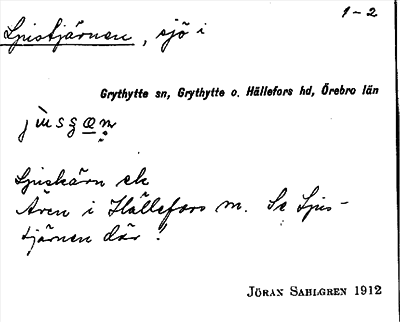 1-2
Ljustjärnen, sjö i
Grythytte sn, Grythytte o. Hällefors hd, Örebro län
Ljuskärn ek
Även i Hällefors sn. Se Ljus-
tjärnen där!
JÖRAN SAHLGREN 1912